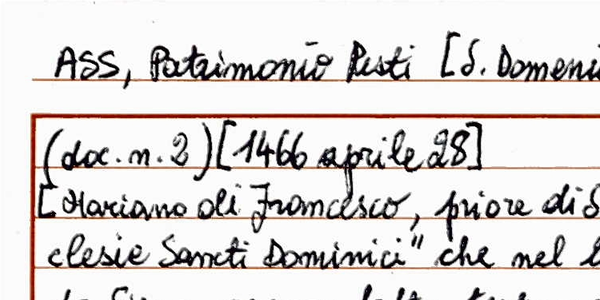 ASS, Patrimonio Resti [S. Domeni
(doc. n. 2) [1466 aprile 28]
[Mariano di Francesco, priore di S
clesie Sancti Dominici" che nel